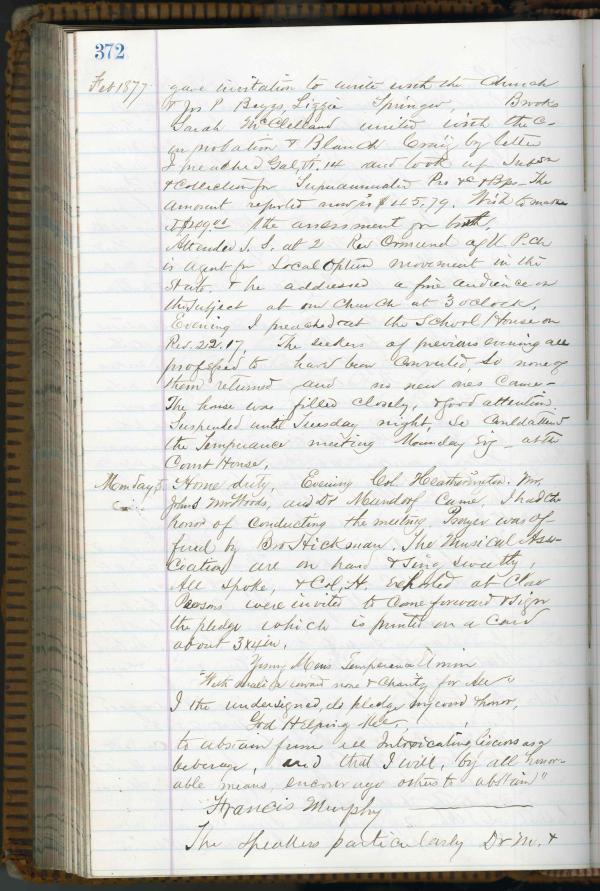 372
Feb 1877 gave invitation to unite with the Church
& Jos P Beggs, Lizzie Springer, Brooks
Sarah McClelland united with the C-
on probation & Blanch Craig by letter
I preached Gal, 6. 14 and took up
& Collection for Superannuated Pre &c & Bps - The
amount reported now is $145.79. Wish to make
it the assessment for both,
Attended S. S. at 2 Rev Ormund of U. P. Ch
is agent for Local Option movement in the
State. & he addressed a fine audience on
the Subject at our Church at 3 oclock,
Evening I preached at the School House on
Rev. 22.17, The seekers of previous evening all
professed to have been Converted, So none of
them returned and no new ones came -
The house was filled closely, & good attention
Suspended until Tuesday night, So could attend
the Temperance meeting Monday Evg - at the
Court House,
Monday 5. Home duty, Evening Col. Heatherington. Mr.
John S McWoods, and Dr Neundorf Came. I had the
honor of conducting the meeting, Prayer was of-
fered by Bro Hickman. The Musical Asso-
ciation are on hand & Sing sweetly,
All spoke, & Col, H. exhorted at Close
Persons were invited to come forward & sign
the pledge which is printed on a card
about 3x4 in,
Young Mens Temperance Union
"With malice toward none & Charity for All"
I the undersigned, do pledge my word & honor,
God Helping Me,
to abstain from all Intoxicating liquors as a
beverage, and that I will, by all honor-
able means, encourage others to abstain"
Francis Murphy
The speakers particularly Dr M. &